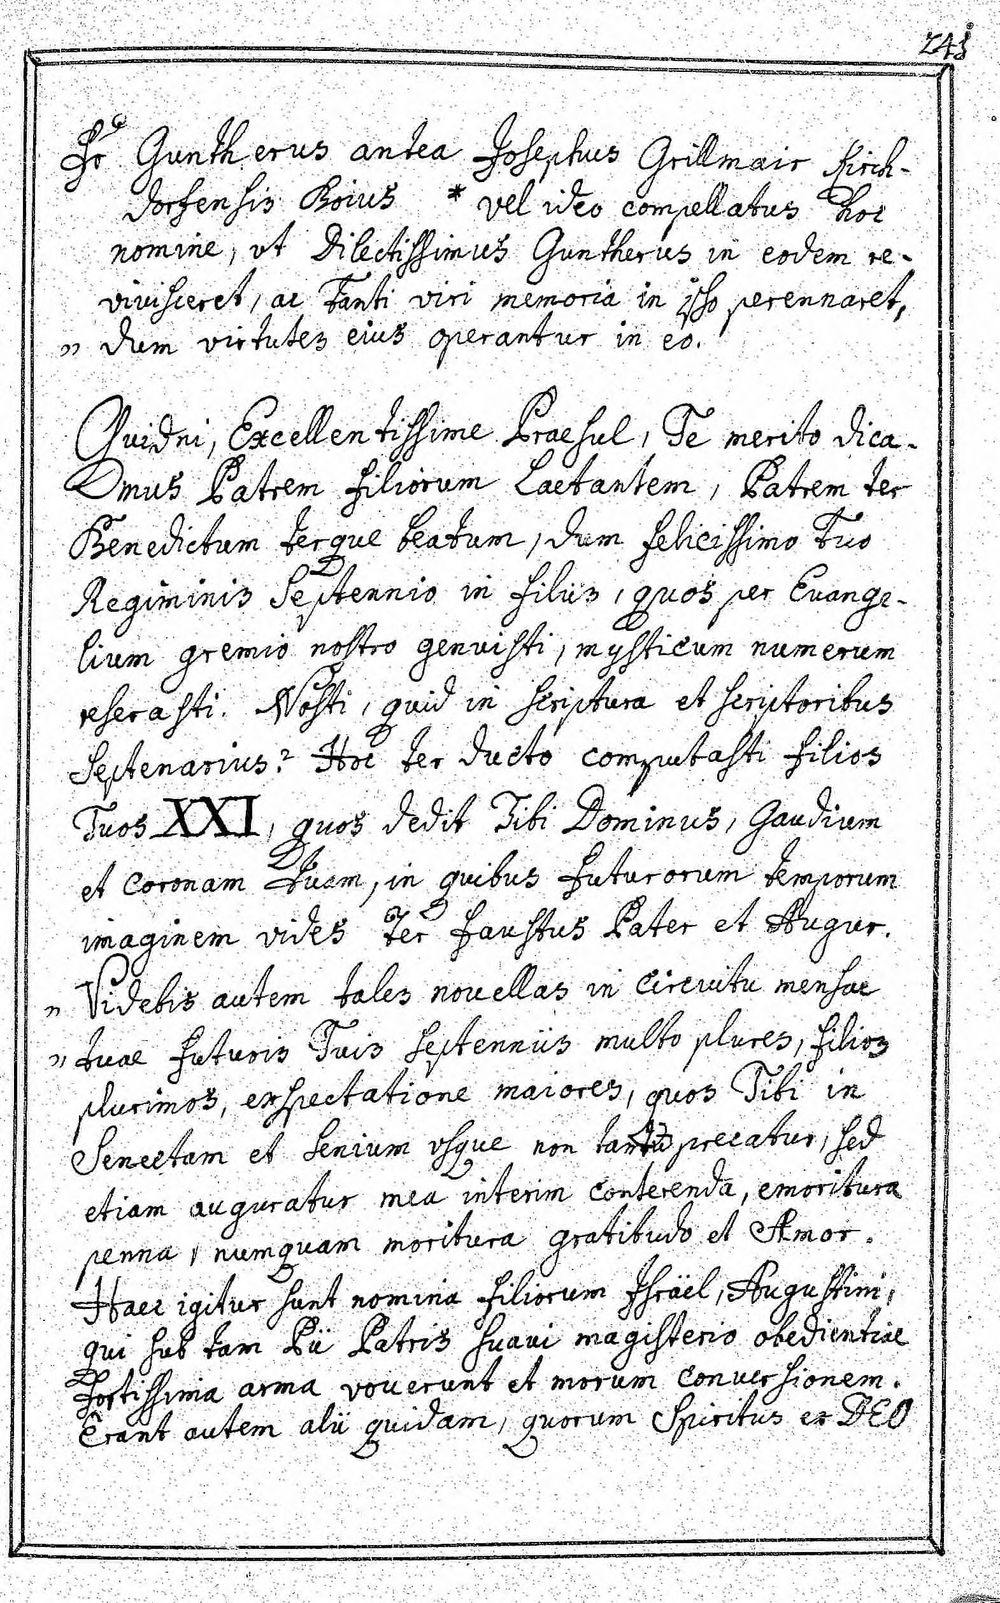 243
Fr Guntherus antea Josephus Grillmair Kirch-
dorfensis Boius * vel ideo compellatus hoc
nomine, vt Dilectissimus Guntherus in eodem re-
viuisceret, ac Tanti viri memoria in ipso perennaret,
" dum virtutes eius operantur in eo.
Quidni, Excellentissime Praesul, Te merito dica-
mus Patrem filiorum Laetantem, Patrem ter
Benedictum terque beatum, dum felicissimo Tuo
Regiminis Septennio in filiis, quos per Euange-
lium gremio nostro genuisti, mysticum numerum
reserasti. Nosti, quid in scriptura et scriptoribus
Septenarius? Hoc ter ducto computasti filios
Tuos XXI, quos dedit Tibi Dominus, Gaudium
et coronam Tuam, in quibus futurorum temporum
imaginem vides ter faustus Pater et Augur.
" Videbis autem tales nouellas in circuitu mensae
" tuae futuris Tuis septenniis multo plures, filios
plurimos, exspectatione maiores, quos Tibi in
Senectam et Senium vsque non precatur, sed
etiam auguratur mea interim conterenda, emoritura
penna, numquam moritura gratitudo et Amor.
Haec igitur sunt nomina filiorum Israël, Augustini,
qui sub tam Pii Patris suaui magisterio obedientiae
fortissima arma vouerunt et morum conuersionem.
Erant autem alii quidam, quorum Spiritus ex DEO